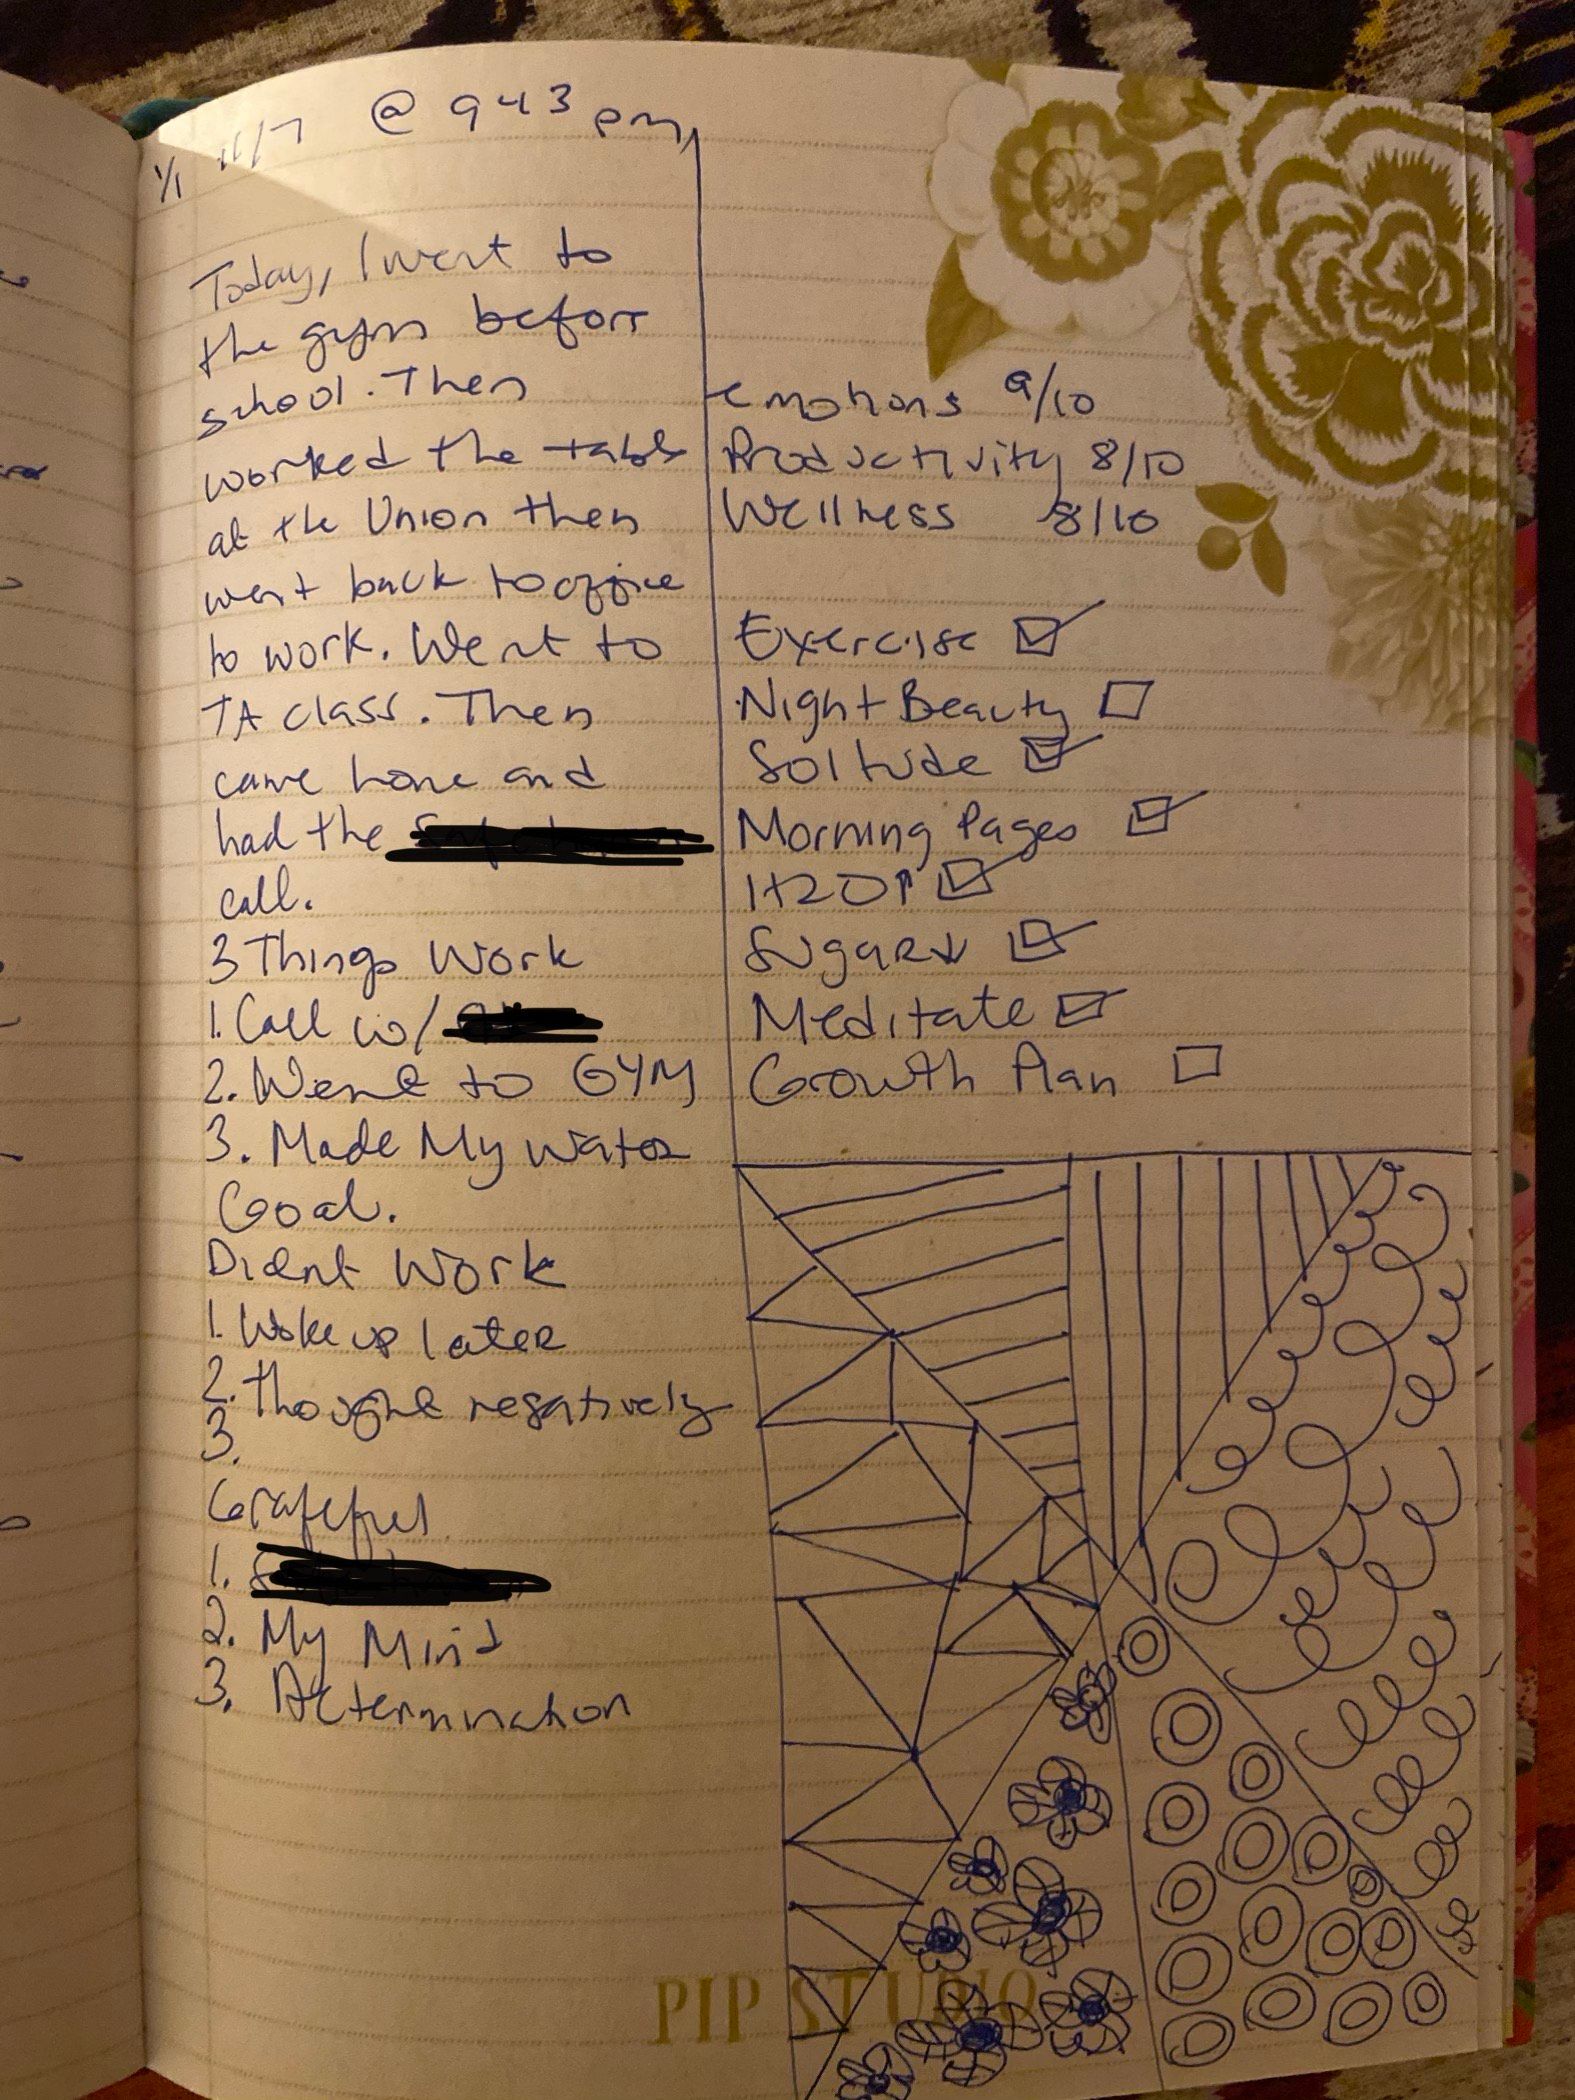 11/7 @ 943 pm
Today, I went to
the gym before
school. Then
worked the table
at the Union then
went back to office
to work. Went to
TA class. Then
came home and
had the
call.
3 Things Work
1. Call w/
2. Went to GYM
3. Made My Water
Goal.
Didnt Work
1. Woke up later
2. Thought negatively
3.
Grateful
1.
2. My Mind
3. Determination
emotions 9/10
Productivity 8/10
Wellness 8/10
Exercise ☑
Night Beauty ☐
Soltude ☑
Morning Pages ☑
H2O↑ ☑
Sugar↓ ☑
Meditate ☑
Growth Plan ☐
PIP STUDIO